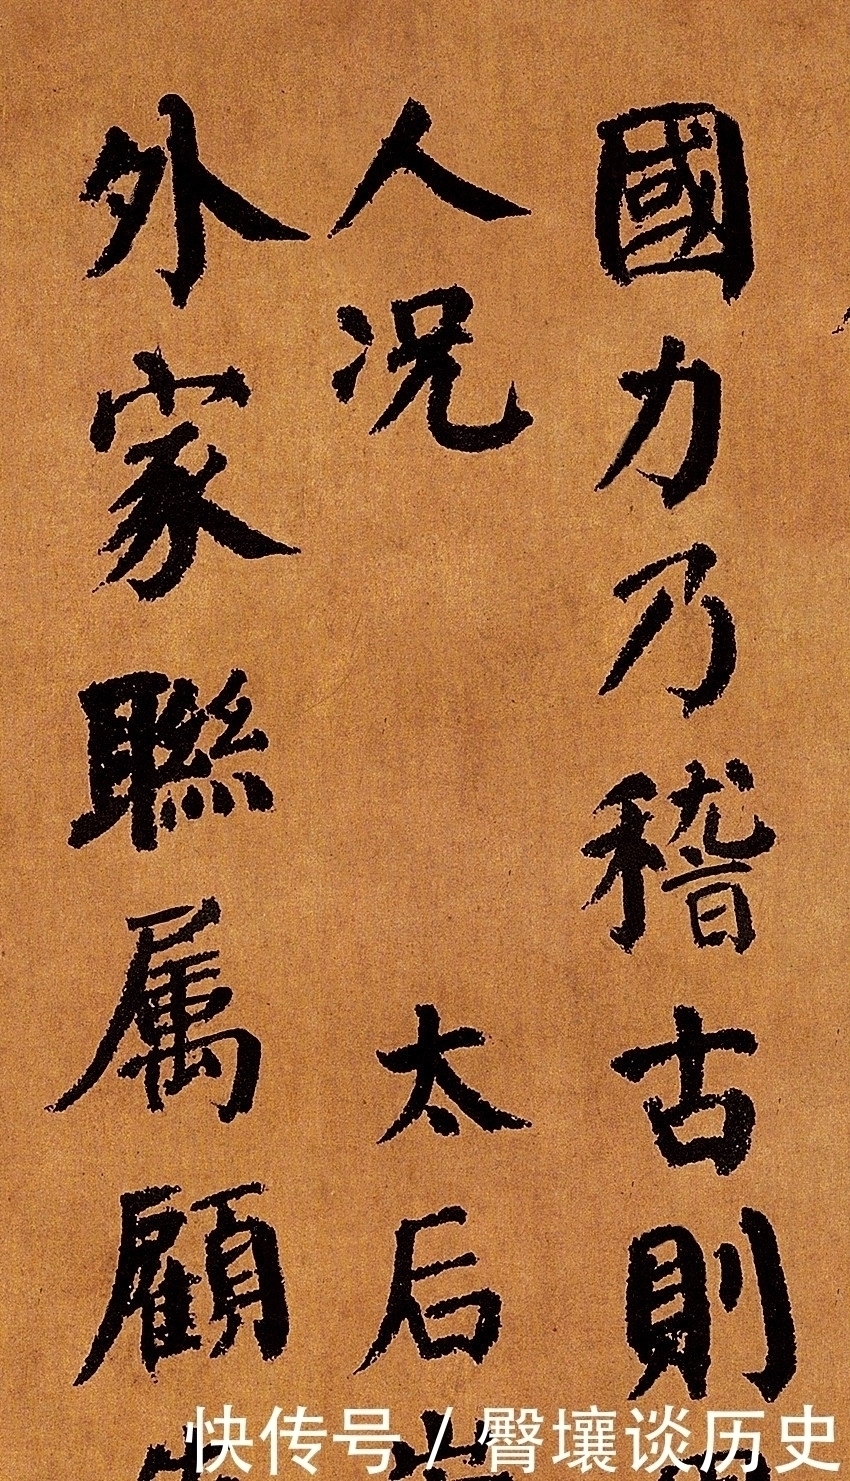 國力乃稽古則
人况 太后
外家聯属顧
快传号 / 臀壤谈历史